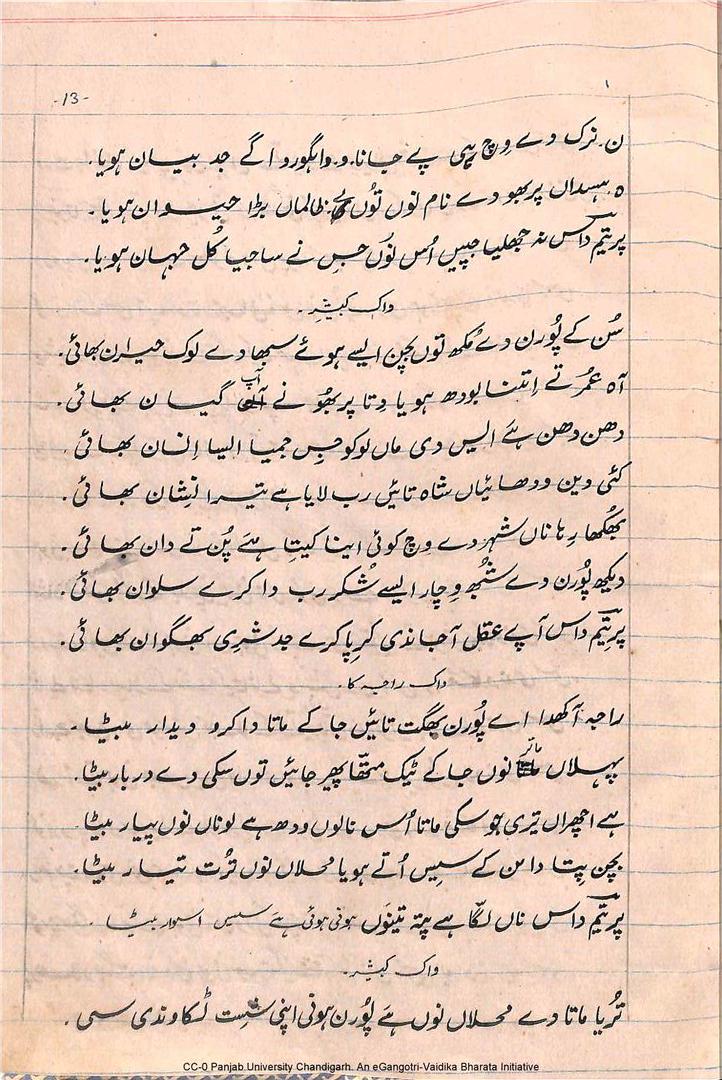 -13-
ن۔ نرک دے وچ پیی پے جانا۔ و۔ واہگورو اگے جد بیان ہویا۔
ہ ہسداں پربھو دے نام نوں توُں ظالماں بڑا حیوان ہویا۔
پریتم داس نہ جھلیا جپیں اُس نوُں جس نے ساجیا کُل جہان ہویا۔
واک کبیشر۔
سُن کے پوُرن دے مُکھ توں بچن ایسے ہوئے سبھا دے لوک حیران بھائی۔
آہ عمُر تے اِتنا بودھ ہویا دِتا پربھوُ نے آپ گیان بھائی۔
دھن دھن ہئے ایس دی ماں لوکو جس جمیا ایسا اِنسان بھائی۔
کئی دین ودھائیاں شاہ تائیں رب لایا ہے تیرا نِشان بھائی۔
بھُکھا رہا ناں شہر دے وچ کوئی اینا کیتا ہئے پُن تے دان بھائی۔
دیکھ پوُرن دے شُبھ وِچار ایسے شُکر رب دا کرے سلوان بھائی۔
پریتم داس آپے عقل آ جاندی کرِپا کرے جد شری بھگوان بھائی۔
واک راجہ کا۔
راجہ آکھدا اے پوُرن بھگت تائیں جا کے ماتا دا کرو دیدار بیٹا۔
پہلاں مائر نوں جا کے ٹیک متھا پھیر جائیں توں سکی دے دربار بیٹا۔
ہے اچھراں تیری جو سکی ماتا اُس نالوں ودھ ہے لوناں نوں پیار بیٹا
بچن پِتا دا من کے سیِس اُتے ہویا محلاں نوں تُرت تیار بیٹا۔
پریتم داس ناں لگا ہے پتہ تینوں ہونی ہوئی ہے سیس اسوار بیٹا۔
واک کبیشر۔
تُریا ماتا دے محلاں نوں ہے پوُرن ہونی اپنی شِست ٹسکاوندی سی۔
CC-0 Panjab.University Chandigarh. An eGangotri-Vaidika Bharata Initiative